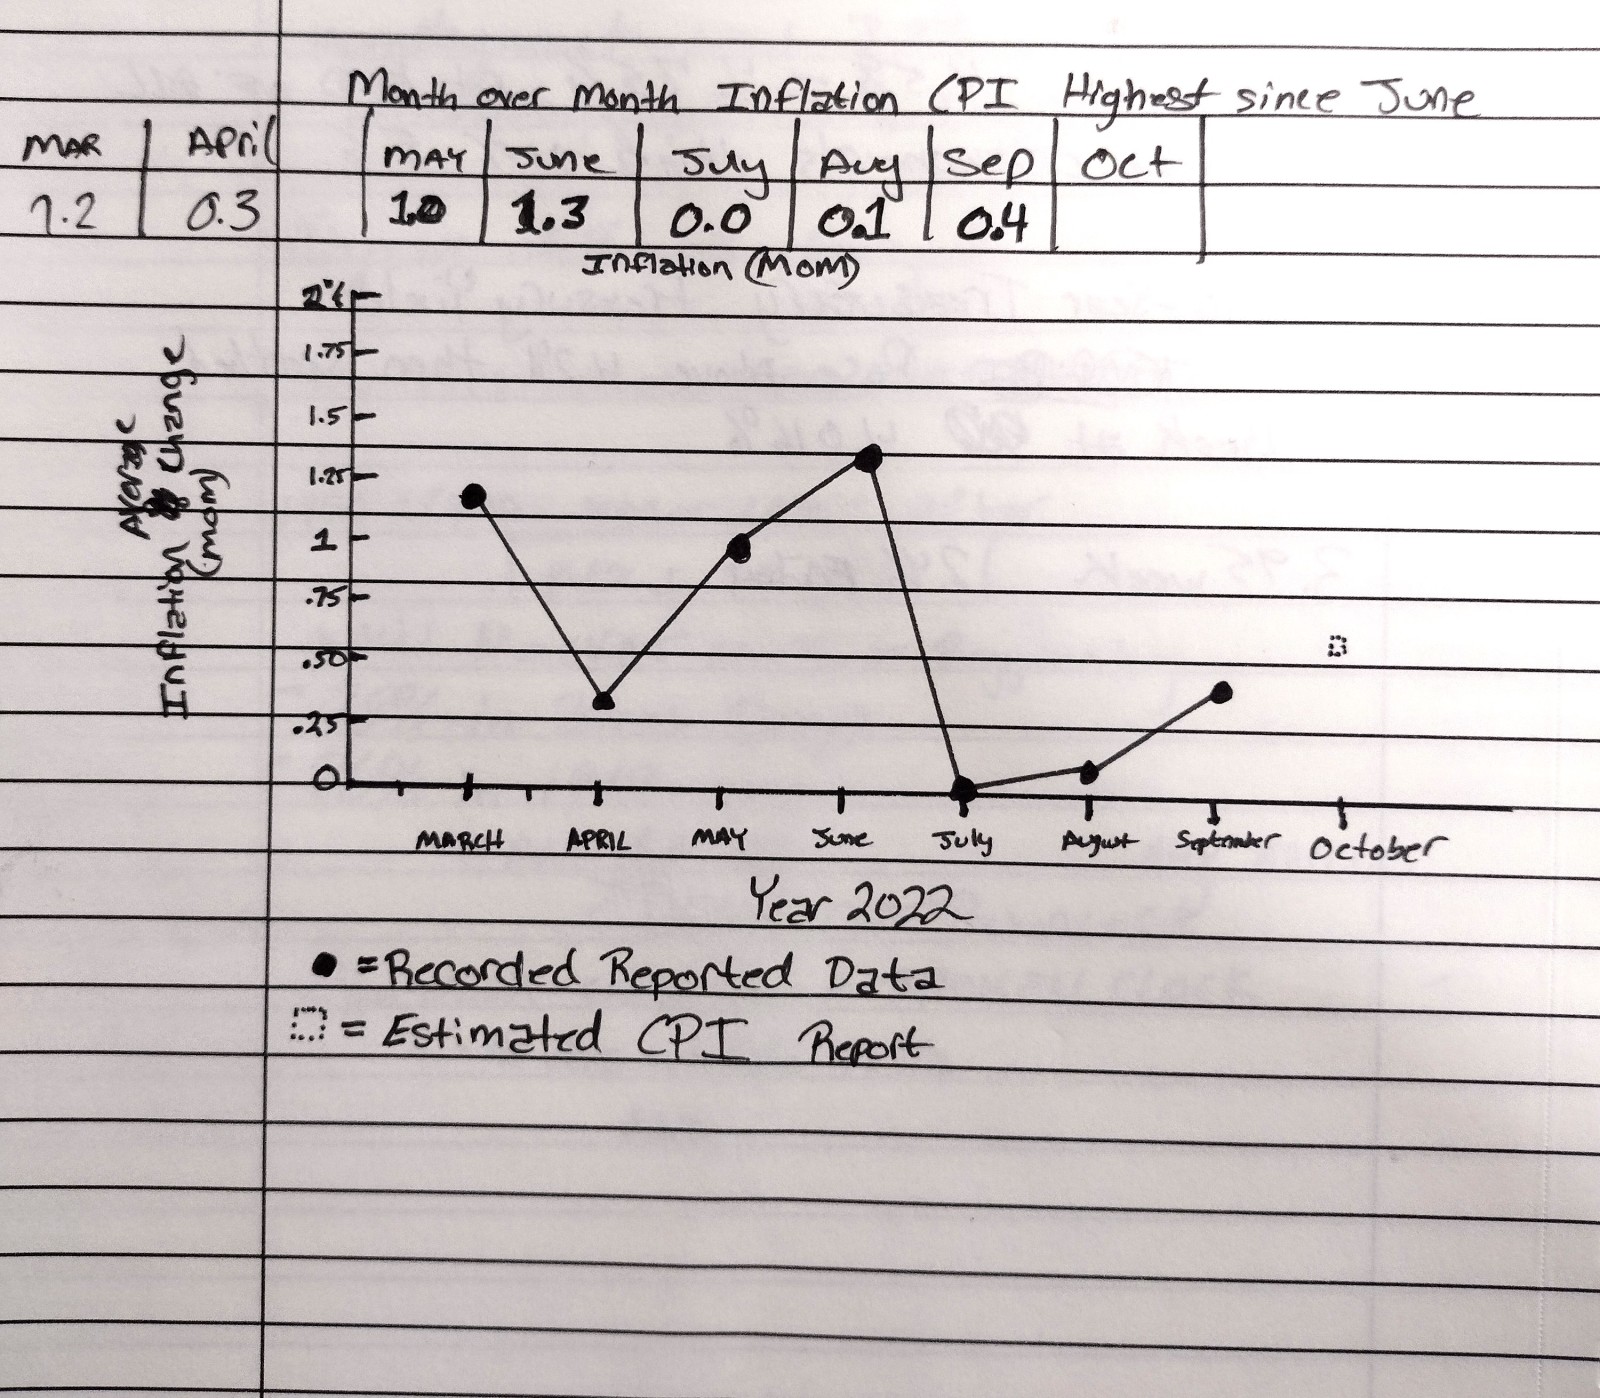 Month over Month Inflation CPI Highest since June
MAR April MAY June July Aug Sep Oct
1.2 0.3 1.0 1.3 0.0 0.1 0.4
Inflation (MOM)
2%
1.75
1.5
1.25
1
.75
.50
.25
0
Average
Inflation Change
(mom)
MARCH APRIL MAY June July August September October
Year 2022
= Recorded Reported Data
= Estimated CPI Report